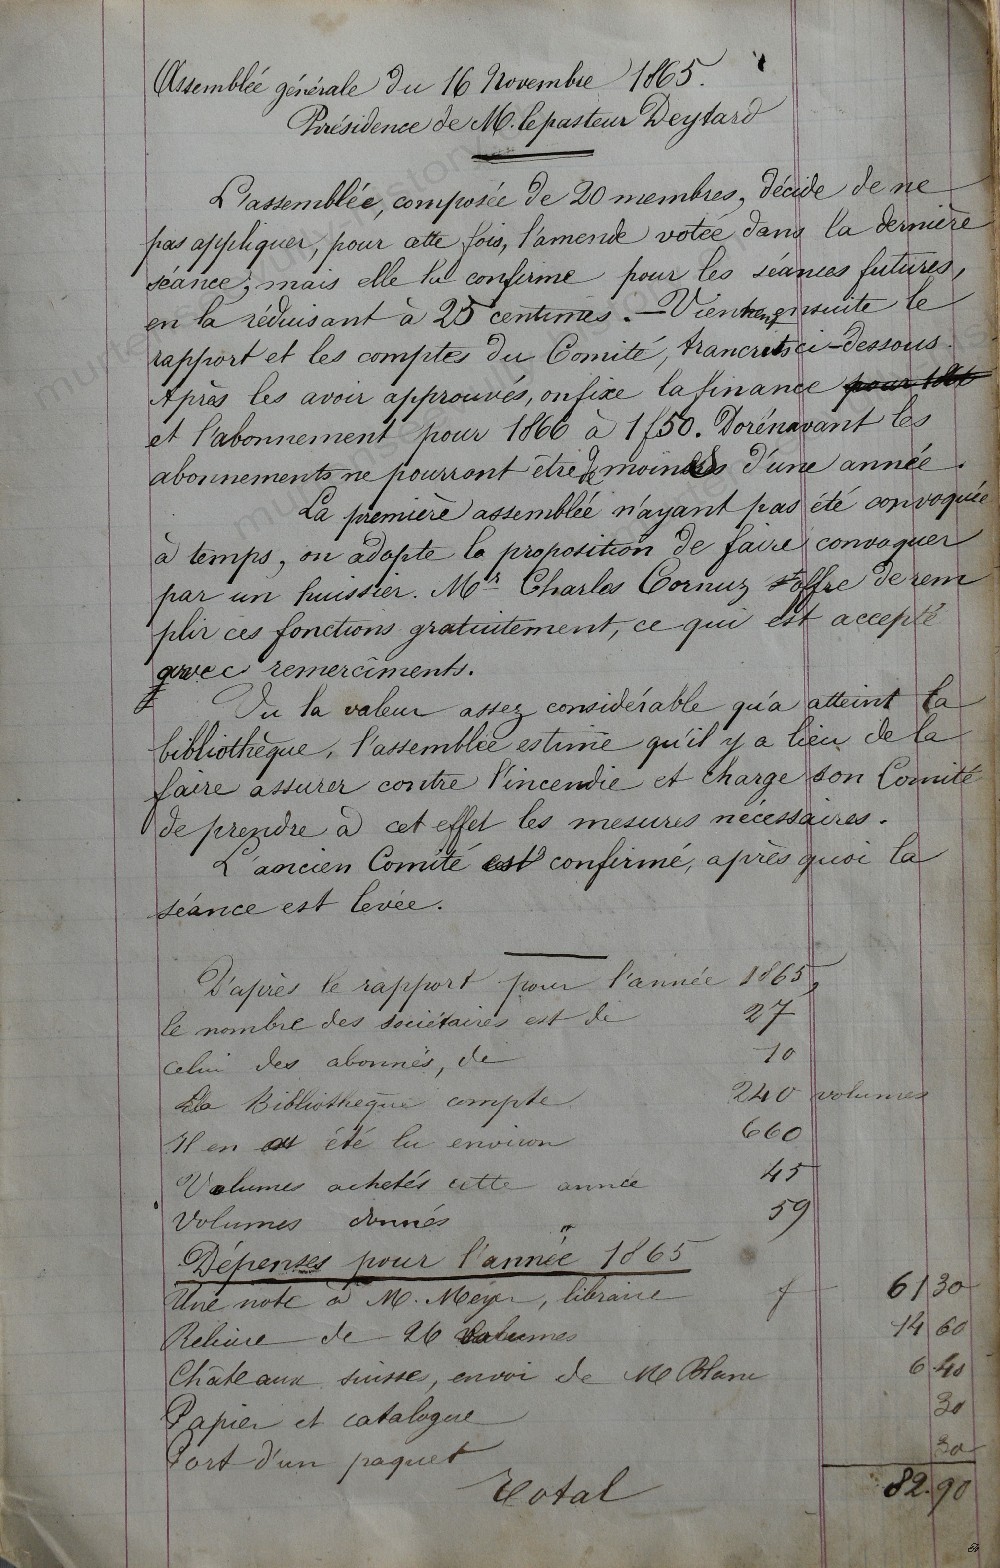 Assemblée générale du 16 Novembre 1865.
Présidence de M. le pasteur Deytard
L'assemblée, composée de 20 membres, décide de ne
pas appliquer, pour cette fois, l'amende votée dans la dernière
séance; mais elle la confirme pour les séances futures,
en la réduisant à 25 centimes. — Viennent ensuite le
rapport et les comptes du Comité, trancrits ci-dessous.
Après les avoir approuvés, on fixe la finance
et l'abonnement pour 1866 à 1f50. Dorénavant les
abonnements ne pourront être de moindres d'une année.
La première assemblée n'ayant pas été convoquée
à temps, on adopte la proposition de faire convoquer
par un huissier. Mr Charles Cornuz s'offre de rem
plir ces fonctions gratuitement, ce qui est accepté
avec remercîments.
Vu la valeur assez considérable qu'a atteint la
bibliothèque, l'assemblée estime qu'il y a lieu de la
faire assurer contre l'incendie et charge son Comité
de prendre à cet effet les mesures nécessaires.
L'ancien Comité est confirmé, après quoi la
séance est levée.
D'après le rapport pour l'année 1865,
le nombre des sociétaires est de 27
celui des abonnés, de 10
La Bibliothèque compte 240 volumes
Il en a été lu environ 660
Volumes achetés cette année 45
Volumes donnés " 59
Dépenses pour l'année 1865
Une note à M. Meyer, libraire f 61 30
Reliure de 26 volumes 14 60
Châteaux suisse, envoi de M Blanc 6 40
Papier et catalogue 30
Port d'un paquet 30
Total 82.90